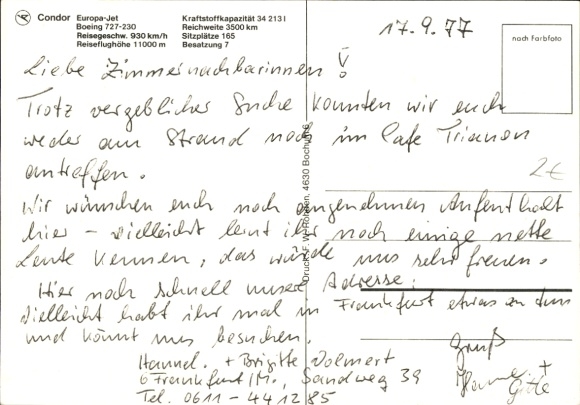 Condor
Europa-Jet
Boeing 727-230
Reisegeschw. 930 km/h
Reiseflughöhe 11000 m
Kraftstoffkapazität 34 213 l
Reichweite 3500 km
Sitzplätze 165
Besatzung 7
17.9.77
nach Farbfoto
Liebe Zimmernachbarinnen!
Trotz vergeblicher Suche konnten wir euch
weder am Strand noch im Cafe Trianon
antreffen.
2€
Wir wünschen euch noch angenehmen Aufenthalt
hier - vielleicht lernt ihr noch einige nette
Leute kennen, das würde uns sehr freuen.
Hier noch schnell unsere Adresse:
Vielleicht habt ihr mal in Frankfurt etwas zu tun
und könnt uns besuchen.
Gruß
Hannel. + Brigitte Volmert
6 Frankfurt/M., Sandweg 39
Tel. 0611 - 441285
+ Gitte
Druck: F. W. 4630 Bochum 6